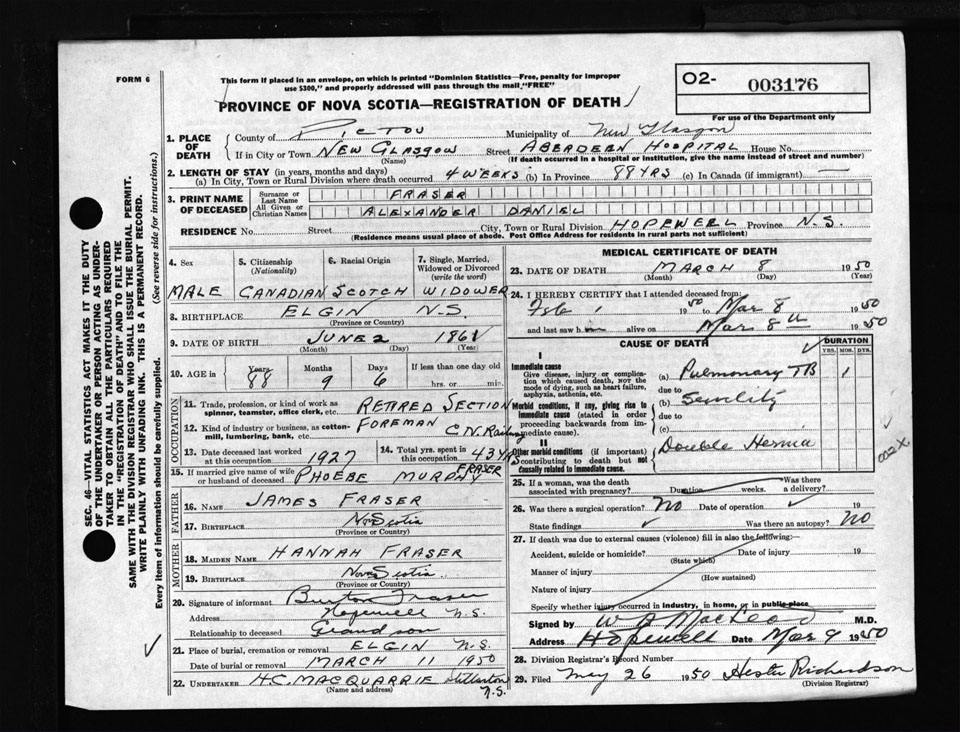 FORM 6
This form if placed in an envelope, on which is printed "Dominion Statistics—Free, penalty for improper
use $300," and properly addressed will pass through the mail "FREE"
O2- 003176
For use of the Department only
PROVINCE OF NOVA SCOTIA—REGISTRATION OF DEATH
1. PLACE OF DEATH
County of PICTOU Municipality of New Glasgow
If in City or Town NEW GLASGOW Street ABERDEEN HOSPITAL House No.
(Name) (If death occurred in a hospital or institution, give the name instead of street and number)
2. LENGTH OF STAY (in years, months and days)
(a) In City, Town or Rural Division where death occurred 4 WEEKS (b) In Province 88 YRS (c) In Canada (if immigrant) —
3. PRINT NAME OF DECEASED
Surname or Last Name FRASER
All Given or Christian Names ALEXANDER DANIEL
RESIDENCE No. Street City, Town or Rural Division HOPEWELL Province N.S.
(Residence means usual place of abode. Post Office Address for residents in rural parts not sufficient)
4. Sex 5. Citizenship (Nationality) 6. Racial Origin 7. Single, Married, Widowed or Divorced (write the word)
MALE CANADIAN SCOTCH WIDOWER
8. BIRTHPLACE ELGIN N.S.
(Province or Country)
9. DATE OF BIRTH JUNE 2 1861
(Month) (Day) (Year)
10. AGE in Years Months Days If less than one day old
88 9 6 hrs. or min.
OCCUPATION
11. Trade, profession, or kind of work as spinner, teamster, office clerk, etc. RETIRED SECTION
12. Kind of industry or business, as cotton-mill, lumbering, bank, etc. FOREMAN C.N. Railway
13. Date deceased last worked at this occupation 1927
14. Total yrs. spent in this occupation 43 YRS
15. If married give name of wife or husband of deceased PHOEBE MURPHY FRASER
FATHER
16. NAME JAMES FRASER
17. BIRTHPLACE Nova Scotia
(Province or Country)
MOTHER
18. MAIDEN NAME HANNAH FRASER
19. BIRTHPLACE Nova Scotia
(Province or Country)
20. Signature of informant Burton Fraser
Address Hopewell N.S.
Relationship to deceased Grandson
21. Place of burial, cremation or removal ELGIN N.S.
Date of burial or removal MARCH 11 1950
22. UNDERTAKER H.C. MACQUARRIE Stellarton N.S.
(Name and address)
MEDICAL CERTIFICATE OF DEATH
23. DATE OF DEATH MARCH 8 1950
(Month) (Day) (Year)
24. I HEREBY CERTIFY that I attended deceased from:
Feb 1 1950 to Mar 8 1950
and last saw him alive on Mar 8th 1950
CAUSE OF DEATH DURATION
YRS. MOS. DYS.
I
Immediate cause
Give disease, injury or complication which caused death, not the mode of dying, such as heart failure, asphyxia, asthenia, etc.
(a) Pulmonary TB 1
due to
Morbid conditions, if any, giving rise to immediate cause (stated in order proceeding backwards from immediate cause).
(b) Senility
due to
(c)
II
Other morbid conditions (if important) contributing to death but not causally related to immediate cause.
Double Hernia
002X
25. If a woman, was the death associated with pregnancy? Duration weeks. Was there a delivery?
26. Was there a surgical operation? NO Date of operation 19
State findings Was there an autopsy? NO
27. If death was due to external causes (violence) fill in also the following:—
Accident, suicide or homicide? Date of injury 19
(State which)
Manner of injury
(How sustained)
Nature of injury
Specify whether injury occurred in industry, in home, or in public place
Signed by W A MacLeod M.D.
Address Hopewell Date Mar 9 1950
28. Division Registrar's Record Number
29. Filed May 26 1950 Hester Richardson
(Division Registrar)
SEC. 46—VITAL STATISTICS ACT MAKES IT THE DUTY
OF THE UNDERTAKER OR PERSON ACTING AS UNDER-
TAKER TO OBTAIN ALL THE PARTICULARS REQUIRED
IN THE "REGISTRATION OF DEATH" AND TO FILE THE
SAME WITH THE DIVISION REGISTRAR WHO SHALL ISSUE THE BURIAL PERMIT.
WRITE PLAINLY WITH UNFADING INK. THIS IS A PERMANENT RECORD.
Every item of information should be carefully supplied. (See reverse side for instructions.)